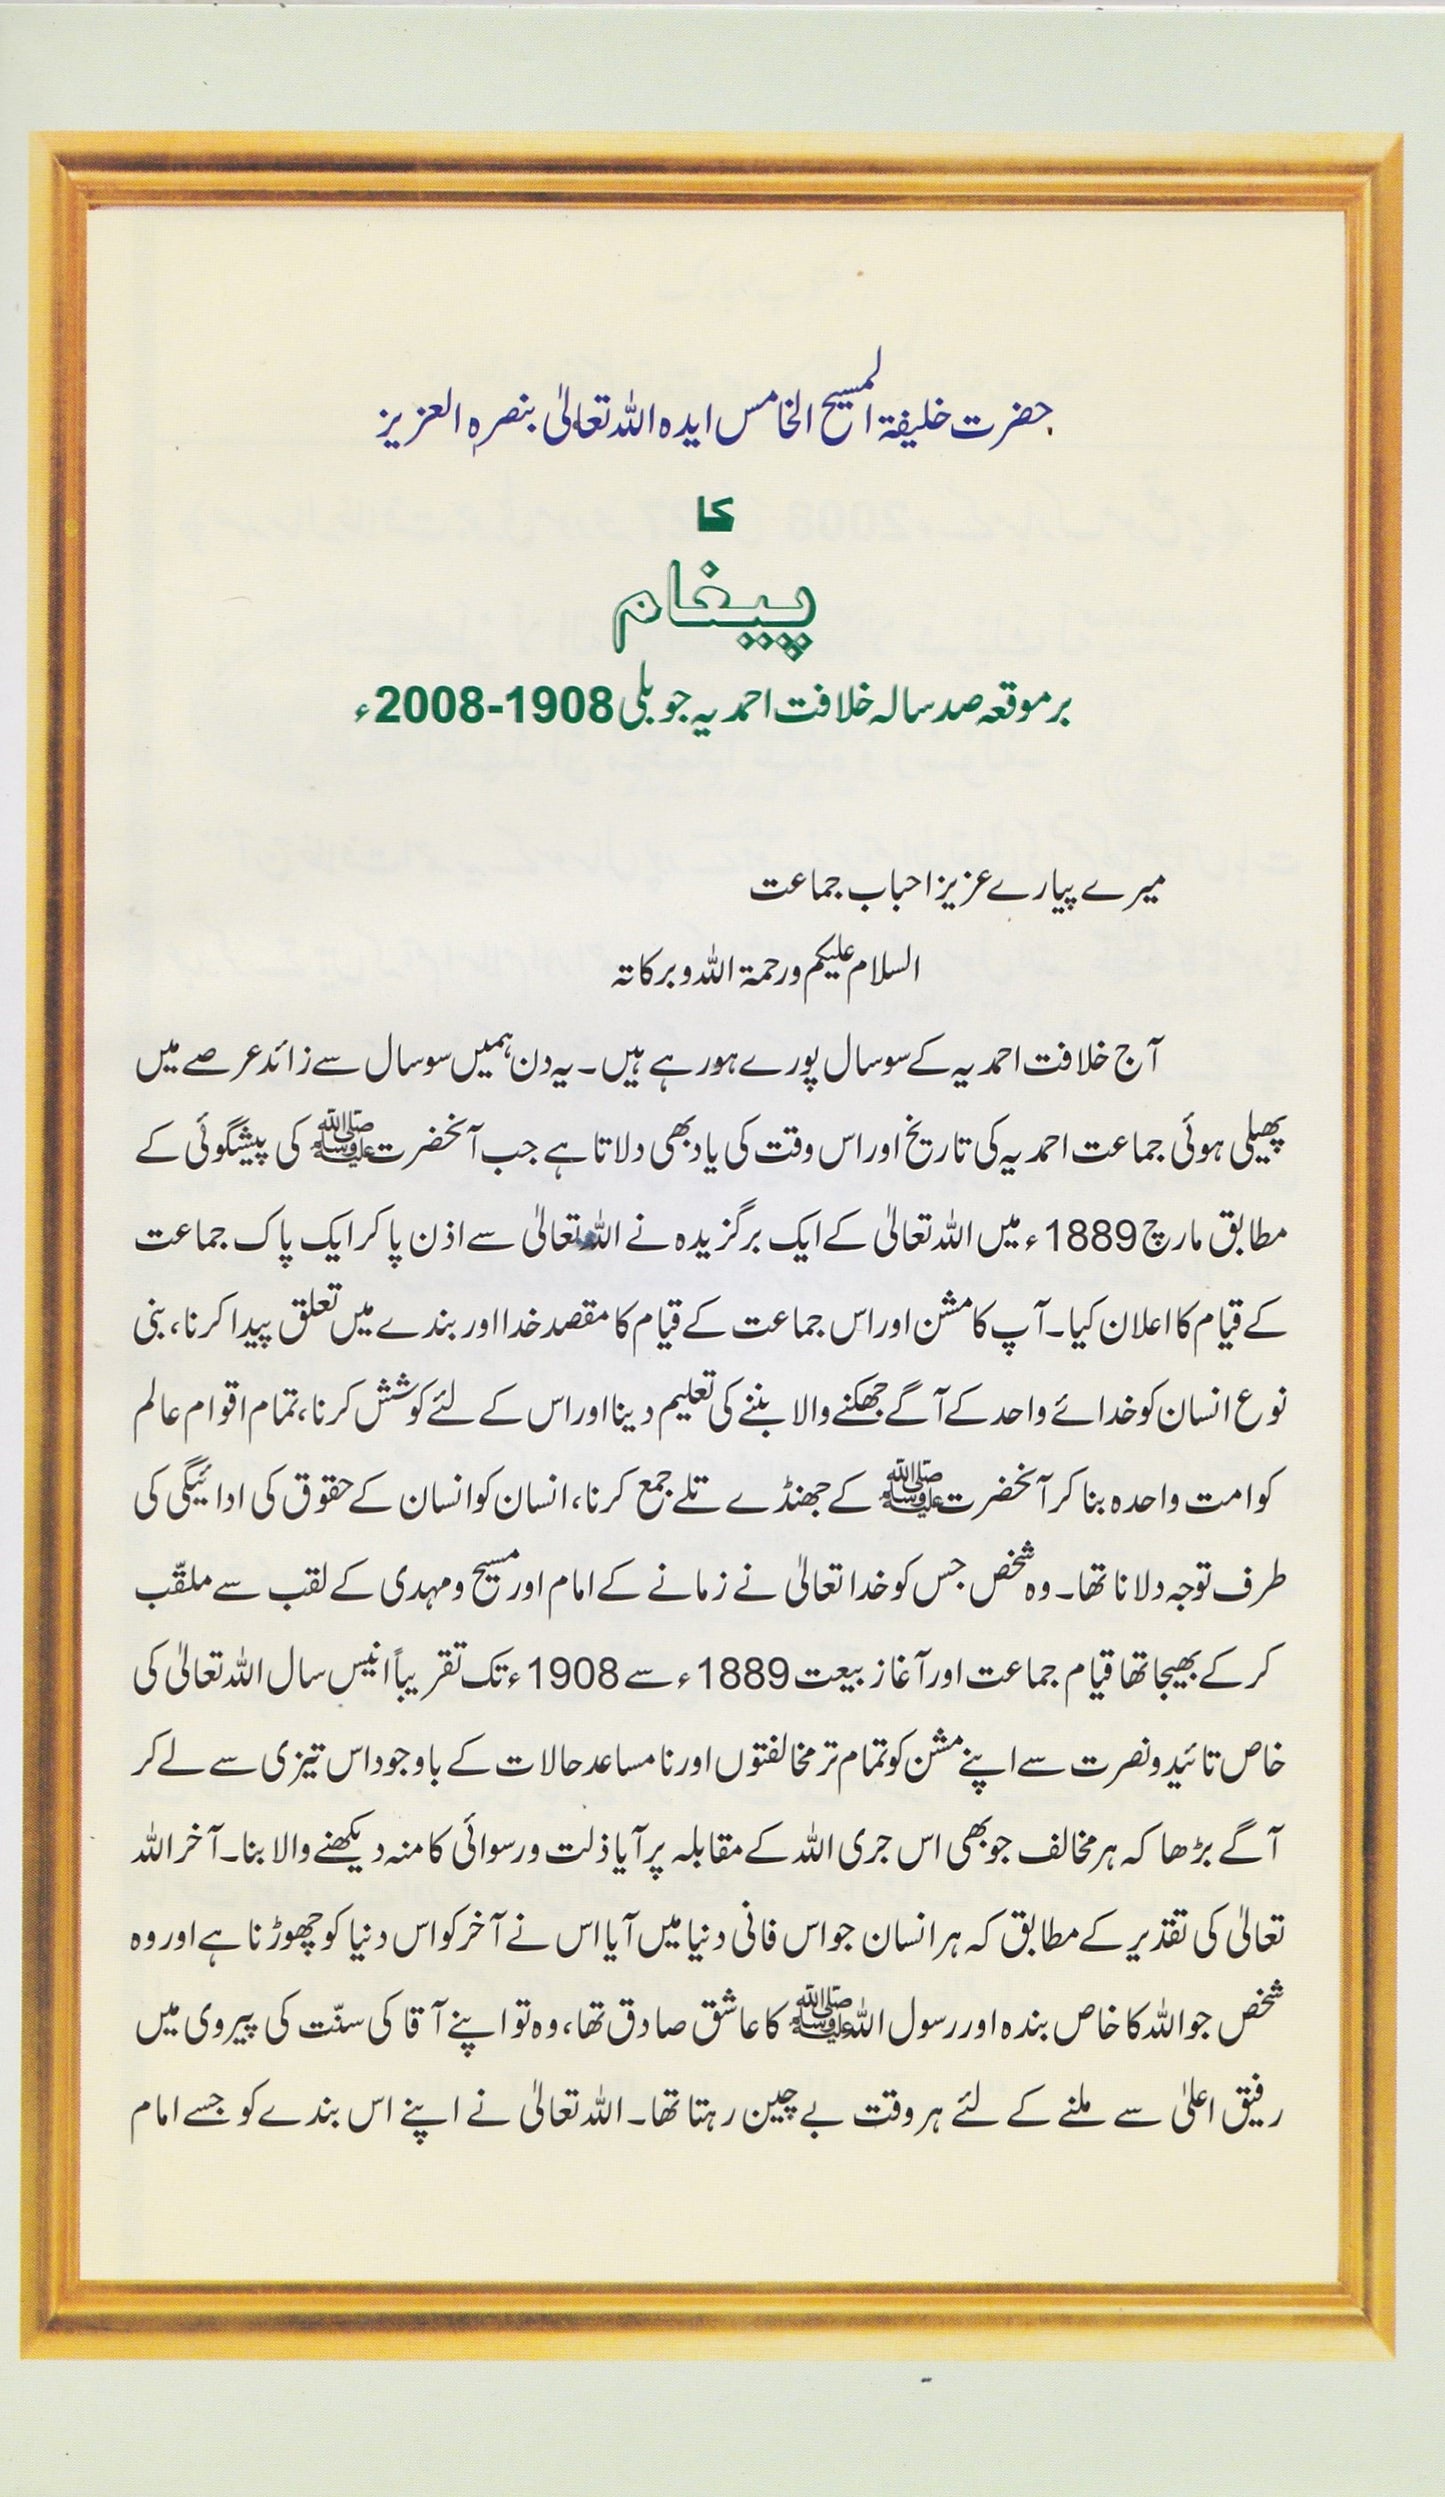 حضرت خلیفۃ المسیح الخامس ایدہ اللہ تعالیٰ بنصرہ العزیز
کا
پیغام
بر موقعہ صد سالہ خلافت احمدیہ جوبلی 1908-2008ء
میرے پیارے عزیز احباب جماعت
السلام علیکم ورحمۃ اللہ وبرکاتہ
آج خلافت احمدیہ کے سو سال پورے ہو رہے ہیں۔ یہ دن ہمیں سو سال سے زائد عرصے میں
پھیلی ہوئی جماعت احمدیہ کی تاریخ اور اس وقت کی یاد بھی دلاتا ہے جب آنحضرت ﷺ کی پیشگوئی کے
مطابق مارچ 1889ء میں اللہ تعالیٰ کے ایک برگزیدہ نے اللہ تعالیٰ سے اذن پا کر ایک پاک جماعت
کے قیام کا اعلان کیا۔ آپ کا مشن اور اس جماعت کے قیام کا مقصد خدا اور بندے میں تعلق پیدا کرنا، بنی
نوع انسان کو خدائے واحد کے آگے جھکنے والا بننے کی تعلیم دینا اور اس کے لئے کوشش کرنا، تمام اقوام عالم
کو امت واحدہ بنا کر آنحضرت ﷺ کے جھنڈے تلے جمع کرنا، انسان کو انسان کے حقوق کی ادائیگی کی
طرف توجہ دلانا تھا۔ وہ شخص جس کو خدا تعالیٰ نے زمانے کے امام اور مسیح و مہدی کے لقب سے ملقّب
کر کے بھیجا تھا قیام جماعت اور آغاز بیعت 1889ء سے 1908ء تک تقریباً انیس سال اللہ تعالیٰ کی
خاص تائید و نصرت سے اپنے مشن کو تمام تر مخالفتوں اور نامساعد حالات کے باوجود اس تیزی سے لے کر
آگے بڑھا کہ ہر مخالف جو بھی اس جری اللہ کے مقابلہ پر آیا ذلت و رسوائی کا منہ دیکھنے والا بنا۔ آخر اللہ
تعالیٰ کی تقدیر کے مطابق کہ ہر انسان جو اس فانی دنیا میں آیا اس نے آخر کو اس دنیا کو چھوڑنا ہے اور وہ
شخص جو اللہ کا خاص بندہ اور رسول اللہ ﷺ کا عاشق صادق تھا، وہ تو اپنے آقا کی سنّت کی پیروی میں
رفیق اعلیٰ سے ملنے کے لئے ہر وقت بے چین رہتا تھا۔ اللہ تعالیٰ نے اپنے اس بندے کو جسے امام